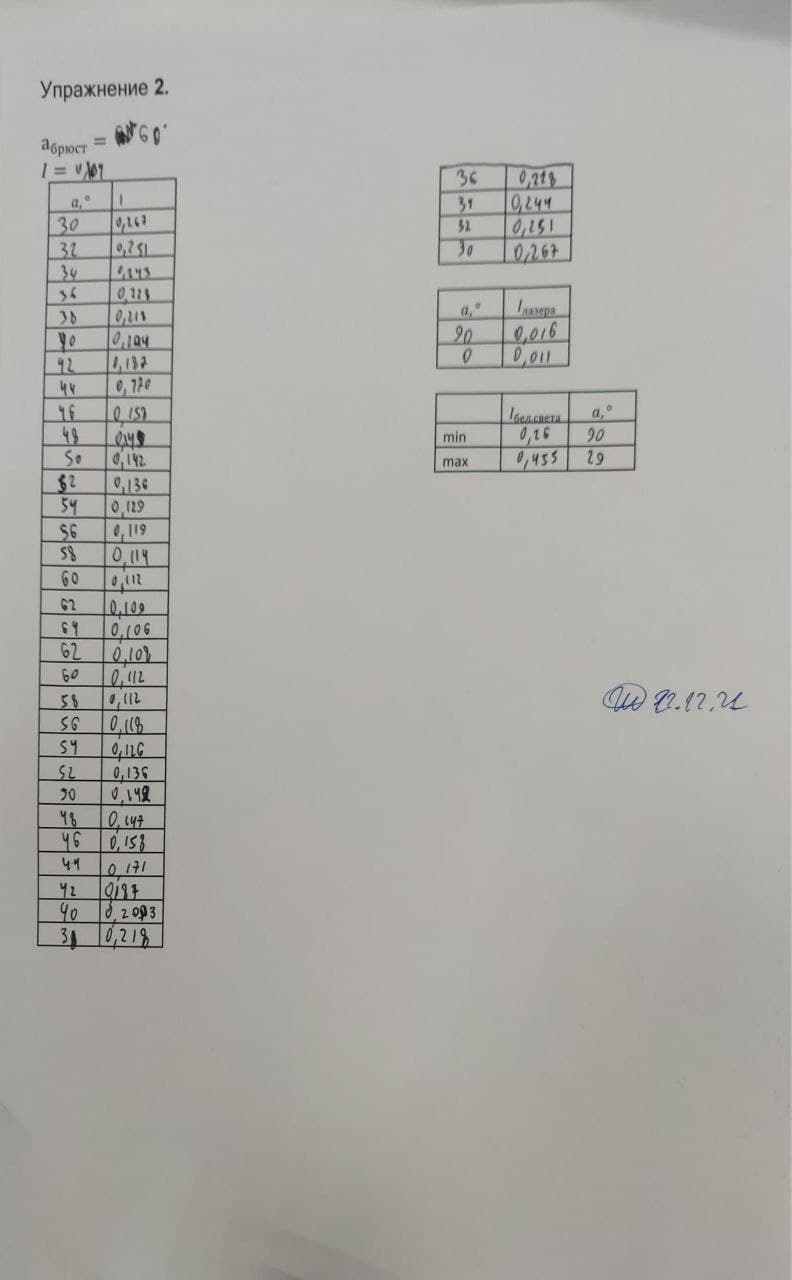 Упражнение 2.
a брюст = 60°
I =
a,° I
30 0,267
32 0,251
34 0,243
36 0,228
38 0,218
40 0,204
42 0,187
44 0,170
46 0,157
48
50 0,142
52 0,136
54 0,129
56 0,119
58 0,114
60 0,112
62 0,109
64 0,106
62 0,108
60 0,112
58 0,112
56 0,118
54 0,126
52 0,136
50 0,142
48 0,147
46 0,158
44 0,171
42 0,187
40
38 0,218
36 0,228
34 0,244
32 0,251
30 0,267
a,° I лазера
90 0,016
0 0,011
I бел.света a,°
min 0,26 90
max 0,455 29
22.12.21